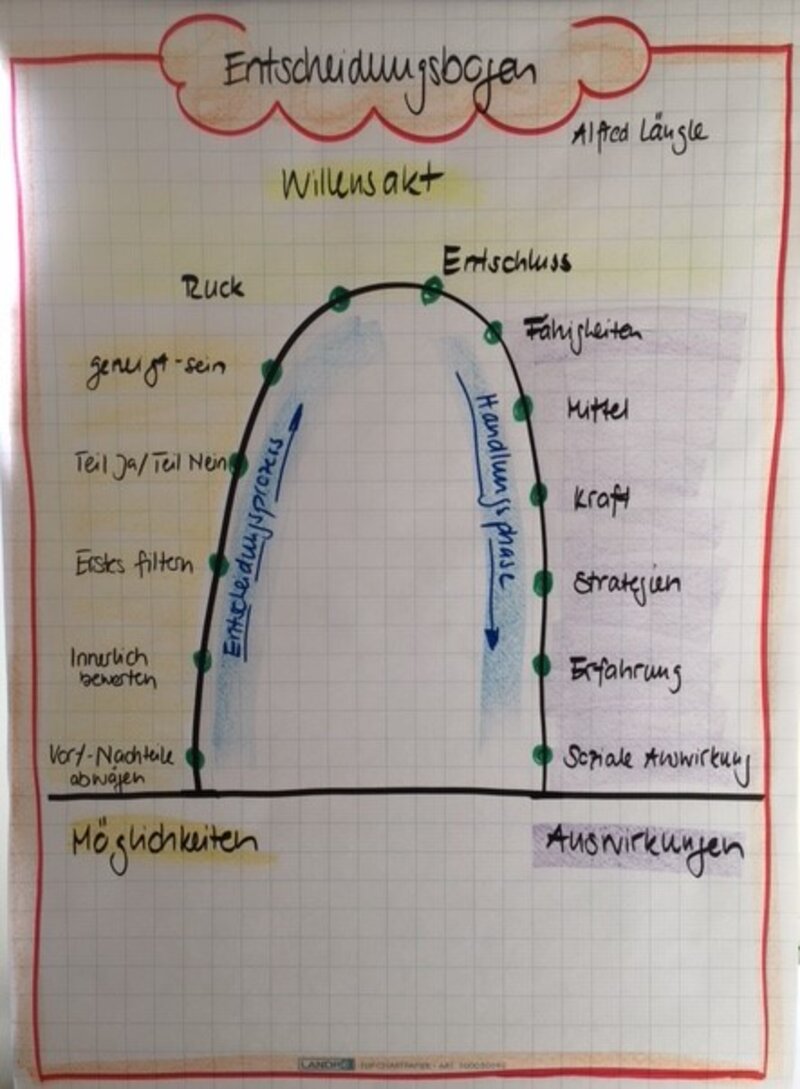 Entscheidungsbogen
Alfred Längle
Willensakt
Ruck
Entschluss
geneigt-sein
Fähigkeiten
Teil Ja/Teil Nein
Mittel
Erstes filtern
Kraft
Innerlich
bewerten
Strategien
Erfahrung
Vor/-Nachteile
abwägen
Soziale Auswirkung
Entscheidungsprozess
Handlungsphase
Möglichkeiten
Auswirkungen
LANDRÉ